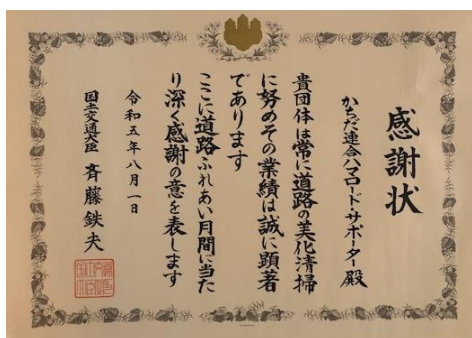 感謝状
かちだ連合ハマロード・サポーター殿
貴団体は常に道路の美化清掃
に努めその業績は誠に顕著
であります
ここに道路ふれあい月間に当た
り深く感謝の意を表します
令和五年八月一日
国土交通大臣 斉藤鉄夫